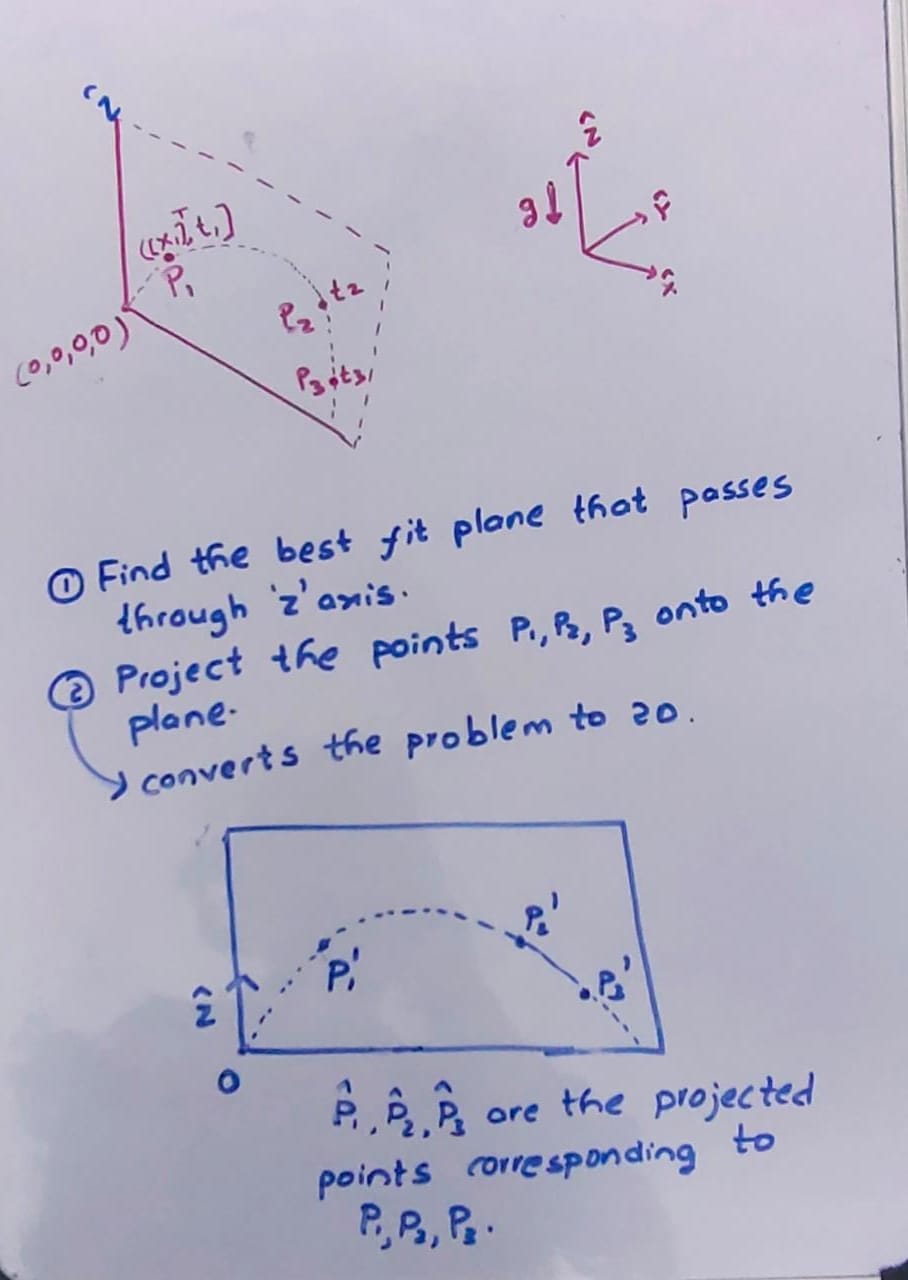 Z
((x,y,z)ᵀ, t₁)
P₁
t₂
P₂
P₃ t₃
(0,0,0,0)
ẑ
g↓
ŷ
x̂
① Find the best fit plane that passes
through 'z' axis.
② Project the points P₁, P₂, P₃ onto the
plane.
converts the problem to 2D.
P₁'
P₂'
P₃'
ẑ
O
P̂₁, P̂₂, P̂₃ are the projected
points corresponding to
P₁, P₂, P₃.